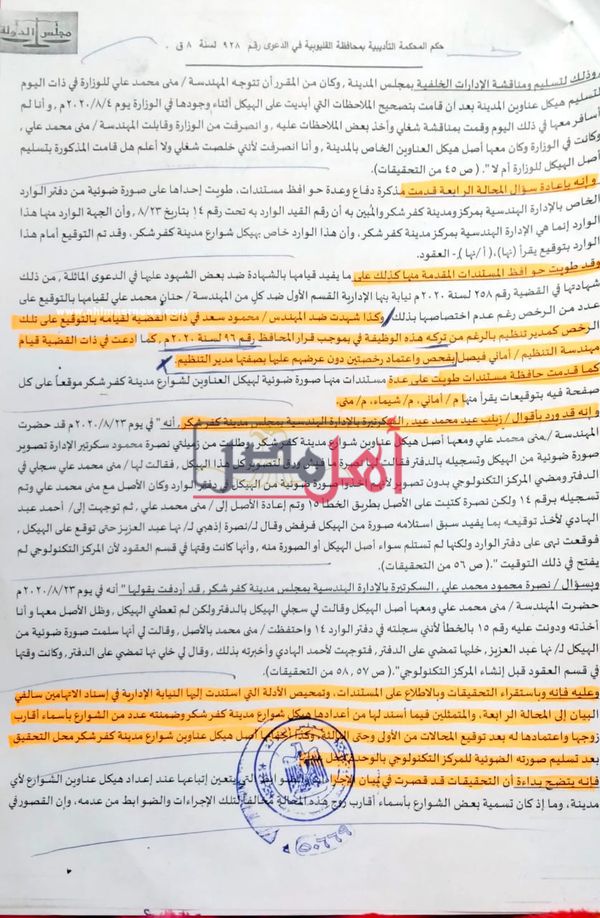 مجلس الدولة
حكم المحكمة التأديبية بمحافظة القليوبية في الدعوى رقم ٩٢٨ لسنة ٨ ق .
وذلك لتسليم ومناقشة الإدارات الخلفية بمجلس المدينة, وكان من المقرر أن تتوجه المهندسة / منى محمد علي للوزارة في ذات اليوم
لتسليم هيكل عناوين المدينة بعد ان قامت بتصحيح الملاحظات التي أبديت على الهيكل أثناء وجودها في الوزارة يوم ٢٠٢٠/٨/٤م , وأنا لم
أسافر معها في ذلك اليوم وقمت بمناقشة شغلي وأخذ بعض الملاحظات عليه , و انصرفت من الوزارة وقابلت المهندسة / منى محمد علي ,
كانت في الوزارة وكان معها أصل هيكل العناوين الخاص بالمدينة , و أنا انصرفت لأنني خلصت شغلي ولا أعلم هل قامت المذكورة بتسليم
أصل الهيكل للوزارة أم لا ". ( ص ٤٥ من التحقيقات).
و إنه بإعادة سؤال المحالة الرابعة قدمت مذكرة دفاع وعدة حوافظ مستندات, طويت إحداها على صورة ضوئية من دفتر الوارد
الخاص بالإدارة الهندسية بمركز ومدينة كفر شكر والمبين به أن رقم القيد الوارد به تحت رقم ١٤ بتاريخ ٨/٢٣ , وأن الجهة الوارد منها هذا
الوارد إنما هي الإدارة الهندسية بمركز ومدينة كفر شكر, وأن هذا الوارد خاص بهيكل شوارع مدينة كفر شكر, وقد تم التوقيع أمام هذا
الوارد بتوقيع يقرأ (نها), ( أ / نها )- العقود.
وقد طويت حوافظ المستندات المقدمة منها كذلك على ما يفيد قيامها بالشهادة ضد بعض الشهود عليها في الدعوى الماثلة , من ذلك
شهادتها في القضية رقم ٢٥٨ لسنة ٢٠٢٠م نيابة بنها الإدارية القسم الأول ضد كل من المهندسة / حنان محمد علي لقيامها بالتوقيع على
عدد من الرخص رغم عدم اختصاصها بذلك, وكذا شهدت ضد المهندس / محمود سعد في ذات القضية لقيامه بالتوقيع على تلك
الرخص كمدير تنظيم بالرغم من تركه هذه الوظيفة بموجب قرار المحافظ رقم ٩٦ لسنة ٢٠٢٠م , كما ادعت في ذات القضية قيام
مهندسة التنظيم / أماني فيصل بفحص واعتماد رخصتين دون عرضهم عليها بصفتها مدير التنظيم .
كما قدمت حافظة مستندات طويت على عدة مستندات منها صورة ضوئية لهيكل العناوين لشوارع مدينة كفر شكر موقعاً على كل
صفحة فيه بتوقيعات يقرأ منها م / أماني, م / شيماء, م/ منى.
و إنه قد ورد بأقوال / زينب عيد محمد عيد , السكرتيرة بالإدارة الهندسية بمجلس مدينة كفر شكر , أنه " في يوم ٢٠٢٠/٨/٢٣م قد حضرت
المهندسة / منى محمد علي ومعها أصل هيكل عناوين شوارع مدينة كفر شكر وطلبت من زميلتي نصرة محمود سكرتير الإدارة تصوير
صورة ضوئية من الهيكل وتسجيله بالدفتر فقالت لها نصرة ما فيش ورق لتصوير كل هذا الهيكل , فقالت لها / منى محمد علي سجلي في
الدفتر ومضي المركز التكنولوجي بدون تصوير لأنهم أخذوا صورة ضوئية من الهيكل في دفتر الوارد وكان الأصل مع منى محمد علي وتم
تسجيله برقم ١٤ ولكن نصرة كتبت على الأصل بطريق الخطأ ١٥ وتم إعادة الأصل إلى / منى محمد علي , ثم توجهت إلى / أحمد عبد
الهادي لأخذ توقيعه بما يفيد سبق استلامه صورة من الهيكل فرفض وقال لـ/ نصرة إذهبي لـ / نها عبد العزيز حتى توقع على الهيكل ,
فوقعت نهى على دفتر الوارد ولكنها لم تستلم سواء أصل الهيكل أو الصورة منه , وأنها كانت وقتها في قسم العقود لأن المركز التكنولوجي لم
يفتح في ذلك التوقيت ". ( ص ٥٦ من التحقيقات).
وبسؤال / نصرة محمود محمد علي , السكرتيرة بالإدارة الهندسية بمجلس مدينة كفر شكر , قد أردفت بقولها " أنه في يوم ٢٠٢٠/٨/٢٣م
حضرت المهندسة / منى محمد علي ومعها أصل الهيكل وقالت لي سجلي الهيكل بالدفتر ولكن لم تعطني الهيكل , وظل الأصل معها و أنا
أخذته ودونت عليه رقم ١٥ بالخطأ لأنني سجلته في دفتر الوارد ١٤ واحتفظت / منى محمد بالأصل , وقالت لي أنها سلمت صورة ضوئية من
الهيكل لـ/ نها عبد العزيز, خليها تمضي على الدفتر , فتوجهت لأحمد الهادي وأخبرته بذلك , وقال لي خلي نها تمضي على الدفتر, وكانت وقتها
في قسم العقود قبل إنشاء المركز التكنولوجي ". ( ص ٥٧ , ٥٨ من التحقيقات).
وعليه فإنه وباستقراء التحقيقات وبالاطلاع على المستندات, وتمحيص الأدلة التي استندت إليها النيابة الإدارية في إسناد الاتهامين سالفي
البيان إلى المحالة الرابعة, والمتمثلين فيما أسند لها من أعدادها هيكل شوارع مدينة كفر شكر وضمنته عدد من الشوارع بأسماء أقارب
زوجها واعتمادها له بعد توقيع المحالات من الأولى وحتى الثالثة, وكذا إنهائها أصل هيكل عناوين شوارع مدينة كفر شكر محل التحقيق
بعد تسليم صورته الضوئية للمركز التكنولوجي بالوحدة
فإنه يتضح بداءة أن التحقيقات قد قصرت في بيان الإجراءات والضوابط التي يتعين إتباعها عند إعداد هيكل عناوين الشوارع لأي
مدينة, وما إذ كان تسمية بعض الشوارع بأسماء أقارب زوج هذه المحالة مخالفاً لتلك الإجراءات والضوابط من عدمه, وإن القصور في
أهل مصر
ahlmasrnews.com
٥٠٦٦٩